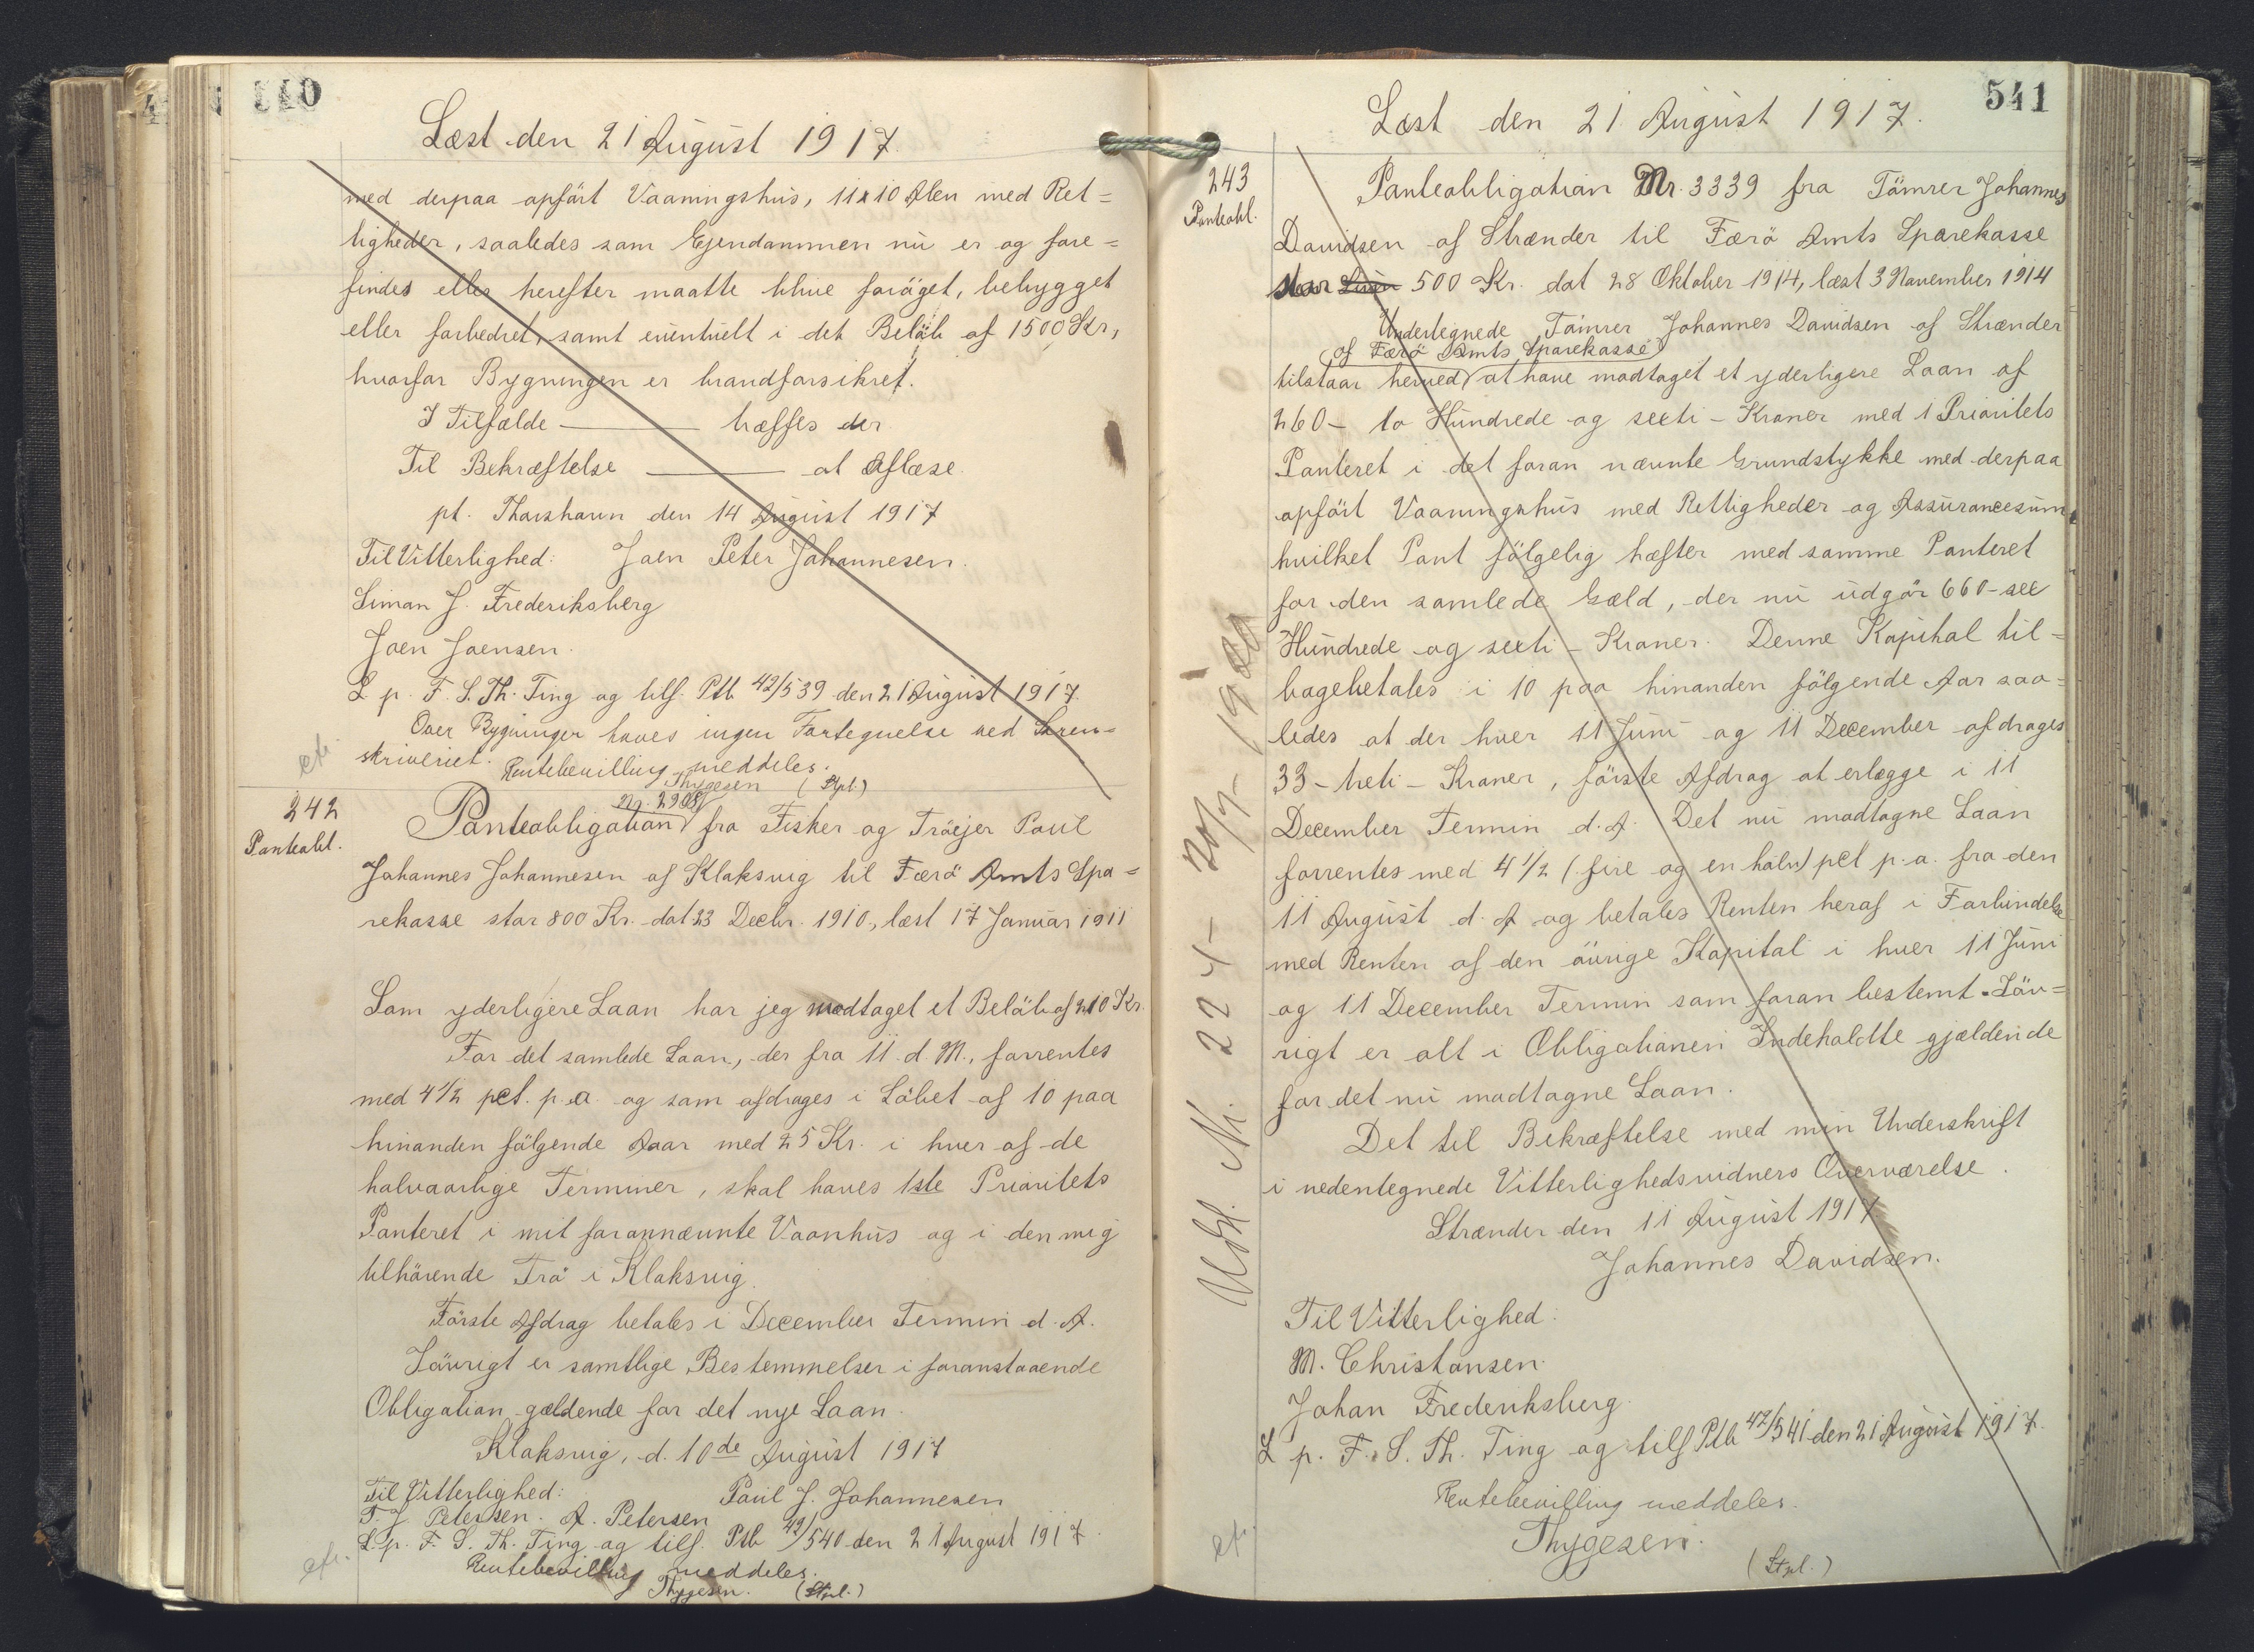 540
Læst den 21 August 1917.
med derpaa opført Vaaningshus, 11x10 Alen med Ret=
tigheder, saaledes som Ejendommen nu er og fore=
findes eller herefter maatte blive forøget, bebygget
eller forbedret, samt eventuelt i det Beløb af 1500 Kr,
hvorfor Bygningen er brandforsikret.
I Tilfælde ——— træffes der
Til Bekræftelse ——— at Aflæse.
pt. Thorshavn den 14 August 1917
Til Vitterlighed: Joen Peter Johannesen.
Simon J. Frederiksberg
Joen Joensen.
L p. F. S. Th. Ting og tilf. Ptb 42/539 den 21 August 1917.
Over Bygninger haves ingen Fortegnelse ved Soren=
skriveriet. Rentebevilling meddeles.
Thygesen (Stpl.)
cfr.
242
Panteobl.
Nr. 2908
Panteobligation fra Fisker og Trøejer Poul
Johannes Johannesen af Klaksvig til Færø Amts Spa=
rekasse stor 800 Kr. dat 23 Decbr. 1910, læst 17 Januar 1911
Som yderligere Laan har jeg modtaget et Beløb af 210 Kr.
For det samlede Laan, der fra 11. d. M., forrentes
med 4 1/2 pct. p.a. og som afdrages i Løbet af 10 paa
hinanden følgende Aar med 25 Kr. i hver af de
halvaarlige Terminer, skal haves 1ste Prioritets
Panteret i mit forannævnte Vaanhus og i den mig
tilhørende Trø i Klaksvig.
Første Afdrag betales i December Termin d. A.
Iøvrigt er samtlige Bestemmelser i foranstaaende
Obligation gældende for det nye Laan.
Klaksvig, d. 10de August 1917
Til Vitterlighed: Poul J. Johannesen
F. J. Petersen. A. Petersen
L p. F. S. Th. Ting og tilf. Ptb 42/540 den 21 August 1917.
Rentebevilling meddeles.
Thygesen. (Stpl.)
cfr.
541
Læst den 21 August 1917.
243
Panteobl.
Panteobligation Nr. 3339 fra Tømrer Johannes
Davidsen af Strænder til Færø Amts Sparekasse
stor 500 Kr. dat 28 Oktober 1914, læst 3 November 1914
Undertegnede Tømrer Johannes Davidsen af Strænder
af Færø Amts Sparekasse
tilstaar herved at have modtaget et yderligere Laan af
260 – to Hundrede og sexti – Kroner med 1 Prioritets
Panteret i det foran nævnte Grundstykke med derpaa
opført Vaaningshus med Rettigheder og Assurancesum
hvilket Pant følgelig hæfter med samme Panteret
for den samlede Gæld, der nu udgør 660 – sex
Hundrede og sexti – Kroner. Denne Kapital til=
bagebetales i 10 paa hinanden følgende Aar saa=
ledes at der hver 11 Juni og 11 December afdrages
33 – treti – Kroner, første Afdrag at erlægge i 11
December Termin d. A. Det nu modtagne Laan
forrentes med 4 1/2 (fire og en halv) pct p.a. fra den
11 August d. A og betales Renten heraf i Forbindelse
med Renten af den øvrige Kapital i hver 11 Juni
og 11 December Termin som foran bestemt. Iøv=
rigt er alt i Obligationen Indeholdte gjældende
for det nu modtagne Laan.
Det til Bekræftelse med min Underskrift
i nedentegnede Vitterlighedsvidners Overværelse.
Strænder den 11 August 1917
Johannes Davidsen.
Til Vitterlighed:
M. Christansen.
Johan Frederiksberg.
L p. F. S. Th. Ting og tilf Ptb 42/541 den 21 August 1917.
Rentebevilling meddeles.
Thygesen.
(Stpl.)
cfr.
Udsl. Nr. 224 – 20/7 –